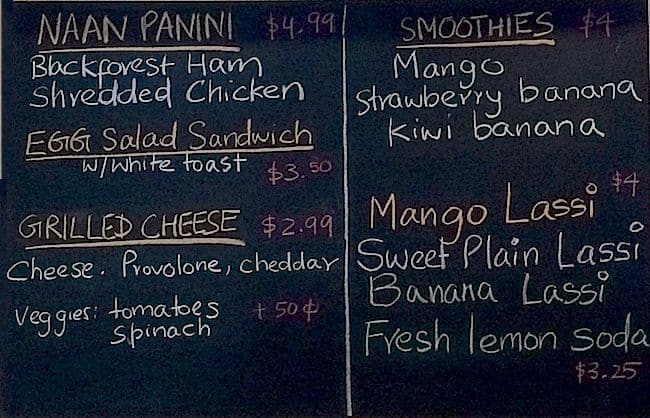 NAAN PANINI $4.99
Blackforest Ham
Shredded Chicken
EGG Salad Sandwich
w/white toast $3.50
GRILLED CHEESE $2.99
Cheese. Provolone, cheddar
Veggies: tomatoes + 50¢
spinach
SMOOTHIES $4
Mango
Strawberry banana
Kiwi banana
Mango Lassi $4
Sweet Plain Lassi
Banana Lassi
Fresh lemon soda
$3.25